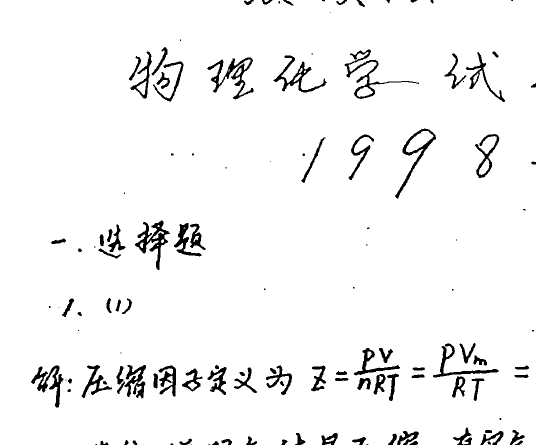 物理化学试
1998
一. 选择题
1. (1)
解: 压缩因子定义为 Z = pV/nRT = pVm/RT =